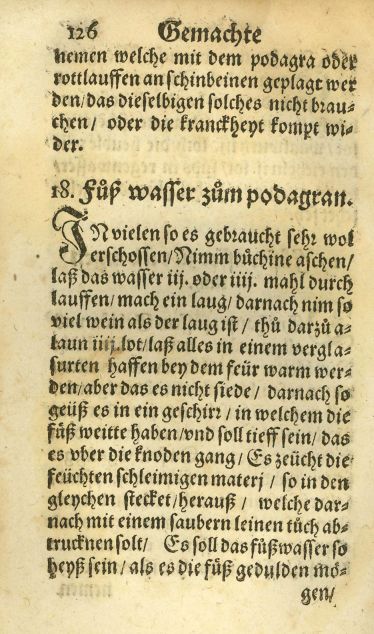 126 Gemachte
nemen welche mit dem podagra oder
rottlauffen an schinbeinen geplagt wer
den/das dieselbigen solches nicht brau-
chen/ oder die kranckheyt kompt wi-
der.
18. Fůß wasser zům podagran.
IN vielen so es gebraucht sehr wol
erschossen/Nimm bůchine aschen/
laß das wasser iij. oder iiij. mahl durch
lauffen/mach ein laug/darnach nim so
viel wein als der laug ist/ thů darzů a-
laun iiij.lot/laß alles in einem vergla-
surten haffen bey dem feür warm wer-
den/aber das es nicht siede/ darnach so
geüß es in ein geschirr/in welchem die
fůß weitte haben/vnd soll tieff sein/das
es vber die knoden gang/Es zeücht die
feüchten schleimigen materj/ so in den
gleychen stecket/herauß/ welche dar-
nach mit einem saubern leinen tůch ab-
trucknen solt/ Es soll das fůßwasser so
heyß sein/als es die fůß gedulden mö-
gen/